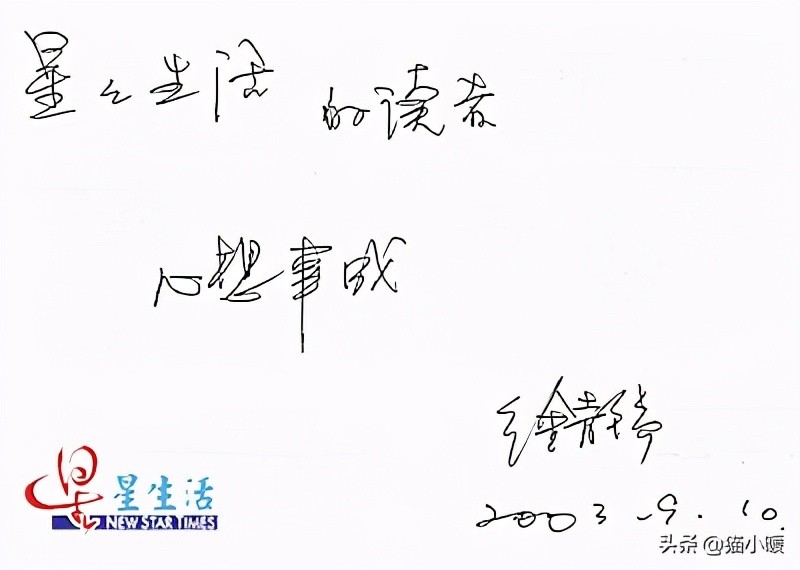 星之生活 的读者
心想事成
2003.9.10.
星生活
NEW STAR TIMES
头条 @猫小暖